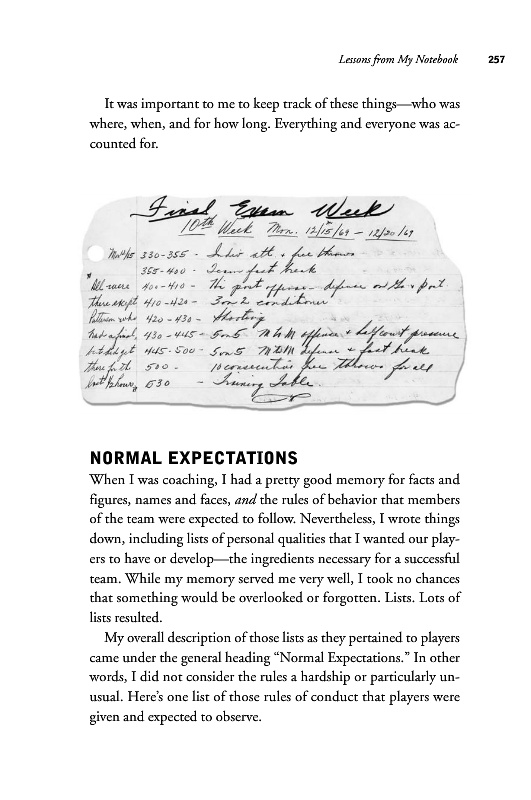 Lessons from My Notebook 257
It was important to me to keep track of these things—who was
where, when, and for how long. Everything and everyone was ac-
counted for.
Final Exam Week
10th Week Mon. 12/15/69 – 12/20/69
Mon 12/15 330-355 - Indiv. att. + free throws
355-400 - Team fast break
* All were 400-410 - The post offense - defense on G's + post
there except 410-420 - 3 on 2 conditioner
Patterson who 420-430 - Shooting
had a final, 430-445 - 5 on 5 M to M offense + half court pressure
but did get 445-500 - 5 on 5 M to M defense + fast break
there for the 500 - 10 consecutive free throws for all
last 1/2 hour. 530 - Training Table
NORMAL EXPECTATIONS
When I was coaching, I had a pretty good memory for facts and
figures, names and faces, and the rules of behavior that members
of the team were expected to follow. Nevertheless, I wrote things
down, including lists of personal qualities that I wanted our play-
ers to have or develop—the ingredients necessary for a successful
team. While my memory served me very well, I took no chances
that something would be overlooked or forgotten. Lists. Lots of
lists resulted.
My overall description of those lists as they pertained to players
came under the general heading “Normal Expectations.” In other
words, I did not consider the rules a hardship or particularly un-
usual. Here’s one list of those rules of conduct that players were
given and expected to observe.